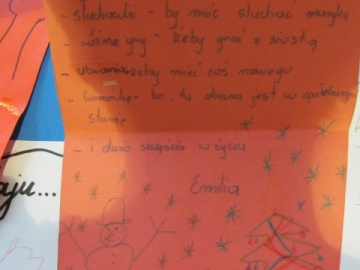 - słuchawki - by móc słuchać muzykę
- różne gry - żeby grać z siostrą
- ubrania żeby mieć coś nowego
- bo ta obecna jest w
stanie
- i dużo szczęścia w życiu
Emilia
aju...